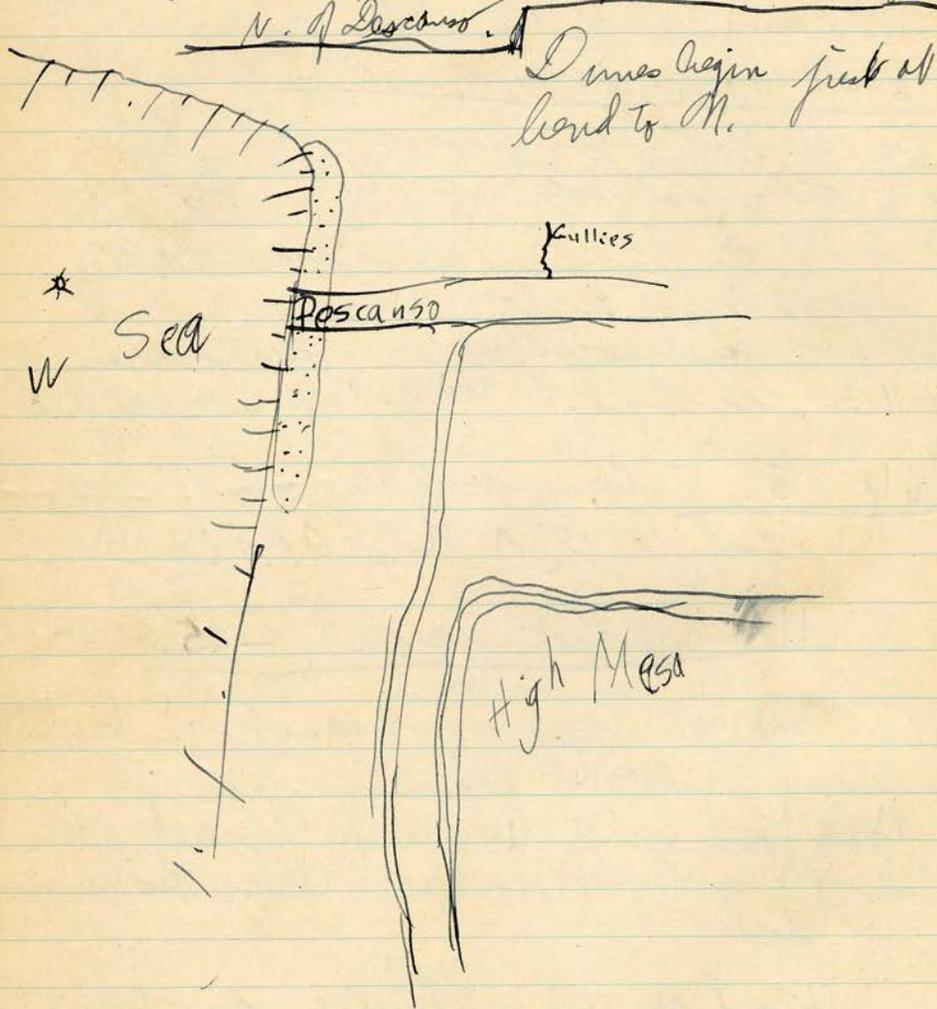 N. of Descanso.
Dunes begin just at
bend to N.
Gullies
Descanso
Sea
W
High Mesa